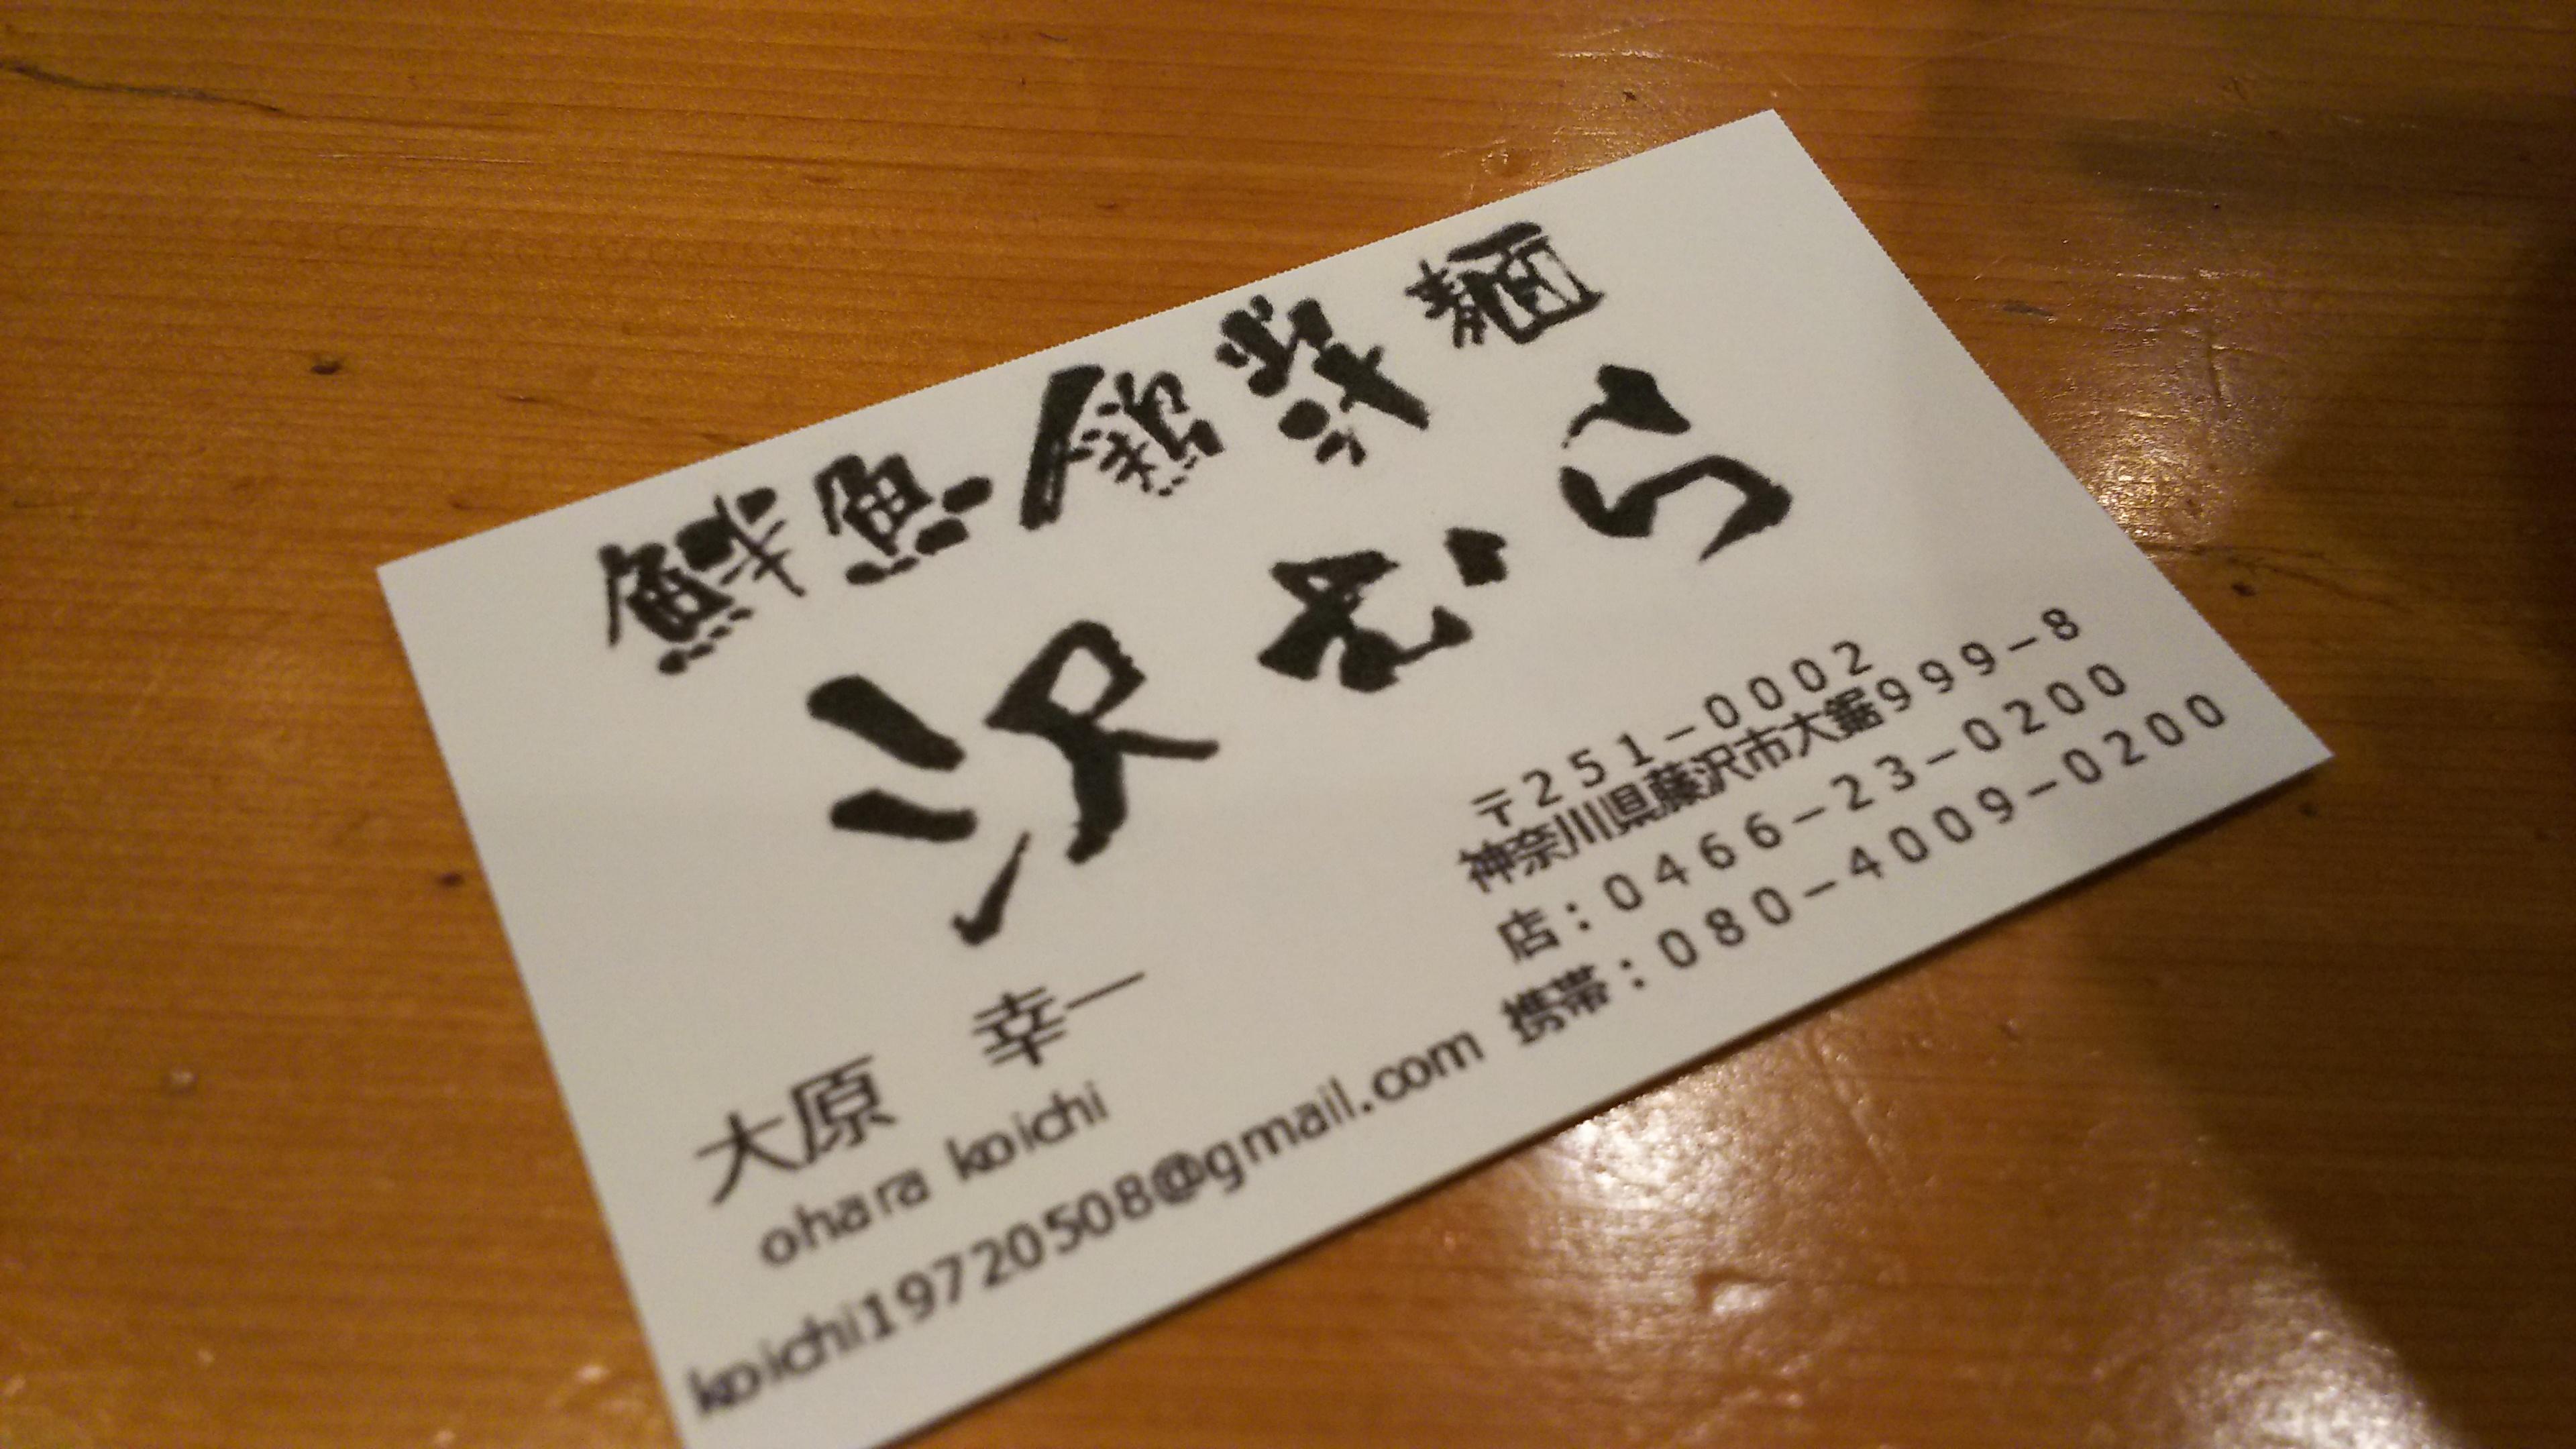 鮮魚 麺
沢むら
〒251-0002
神奈川県藤沢市大鋸999-8
店：0466-23-0200
携帯：080-4009-0200
大原　幸一
ohara koichi
koichi19720508@gmail.com